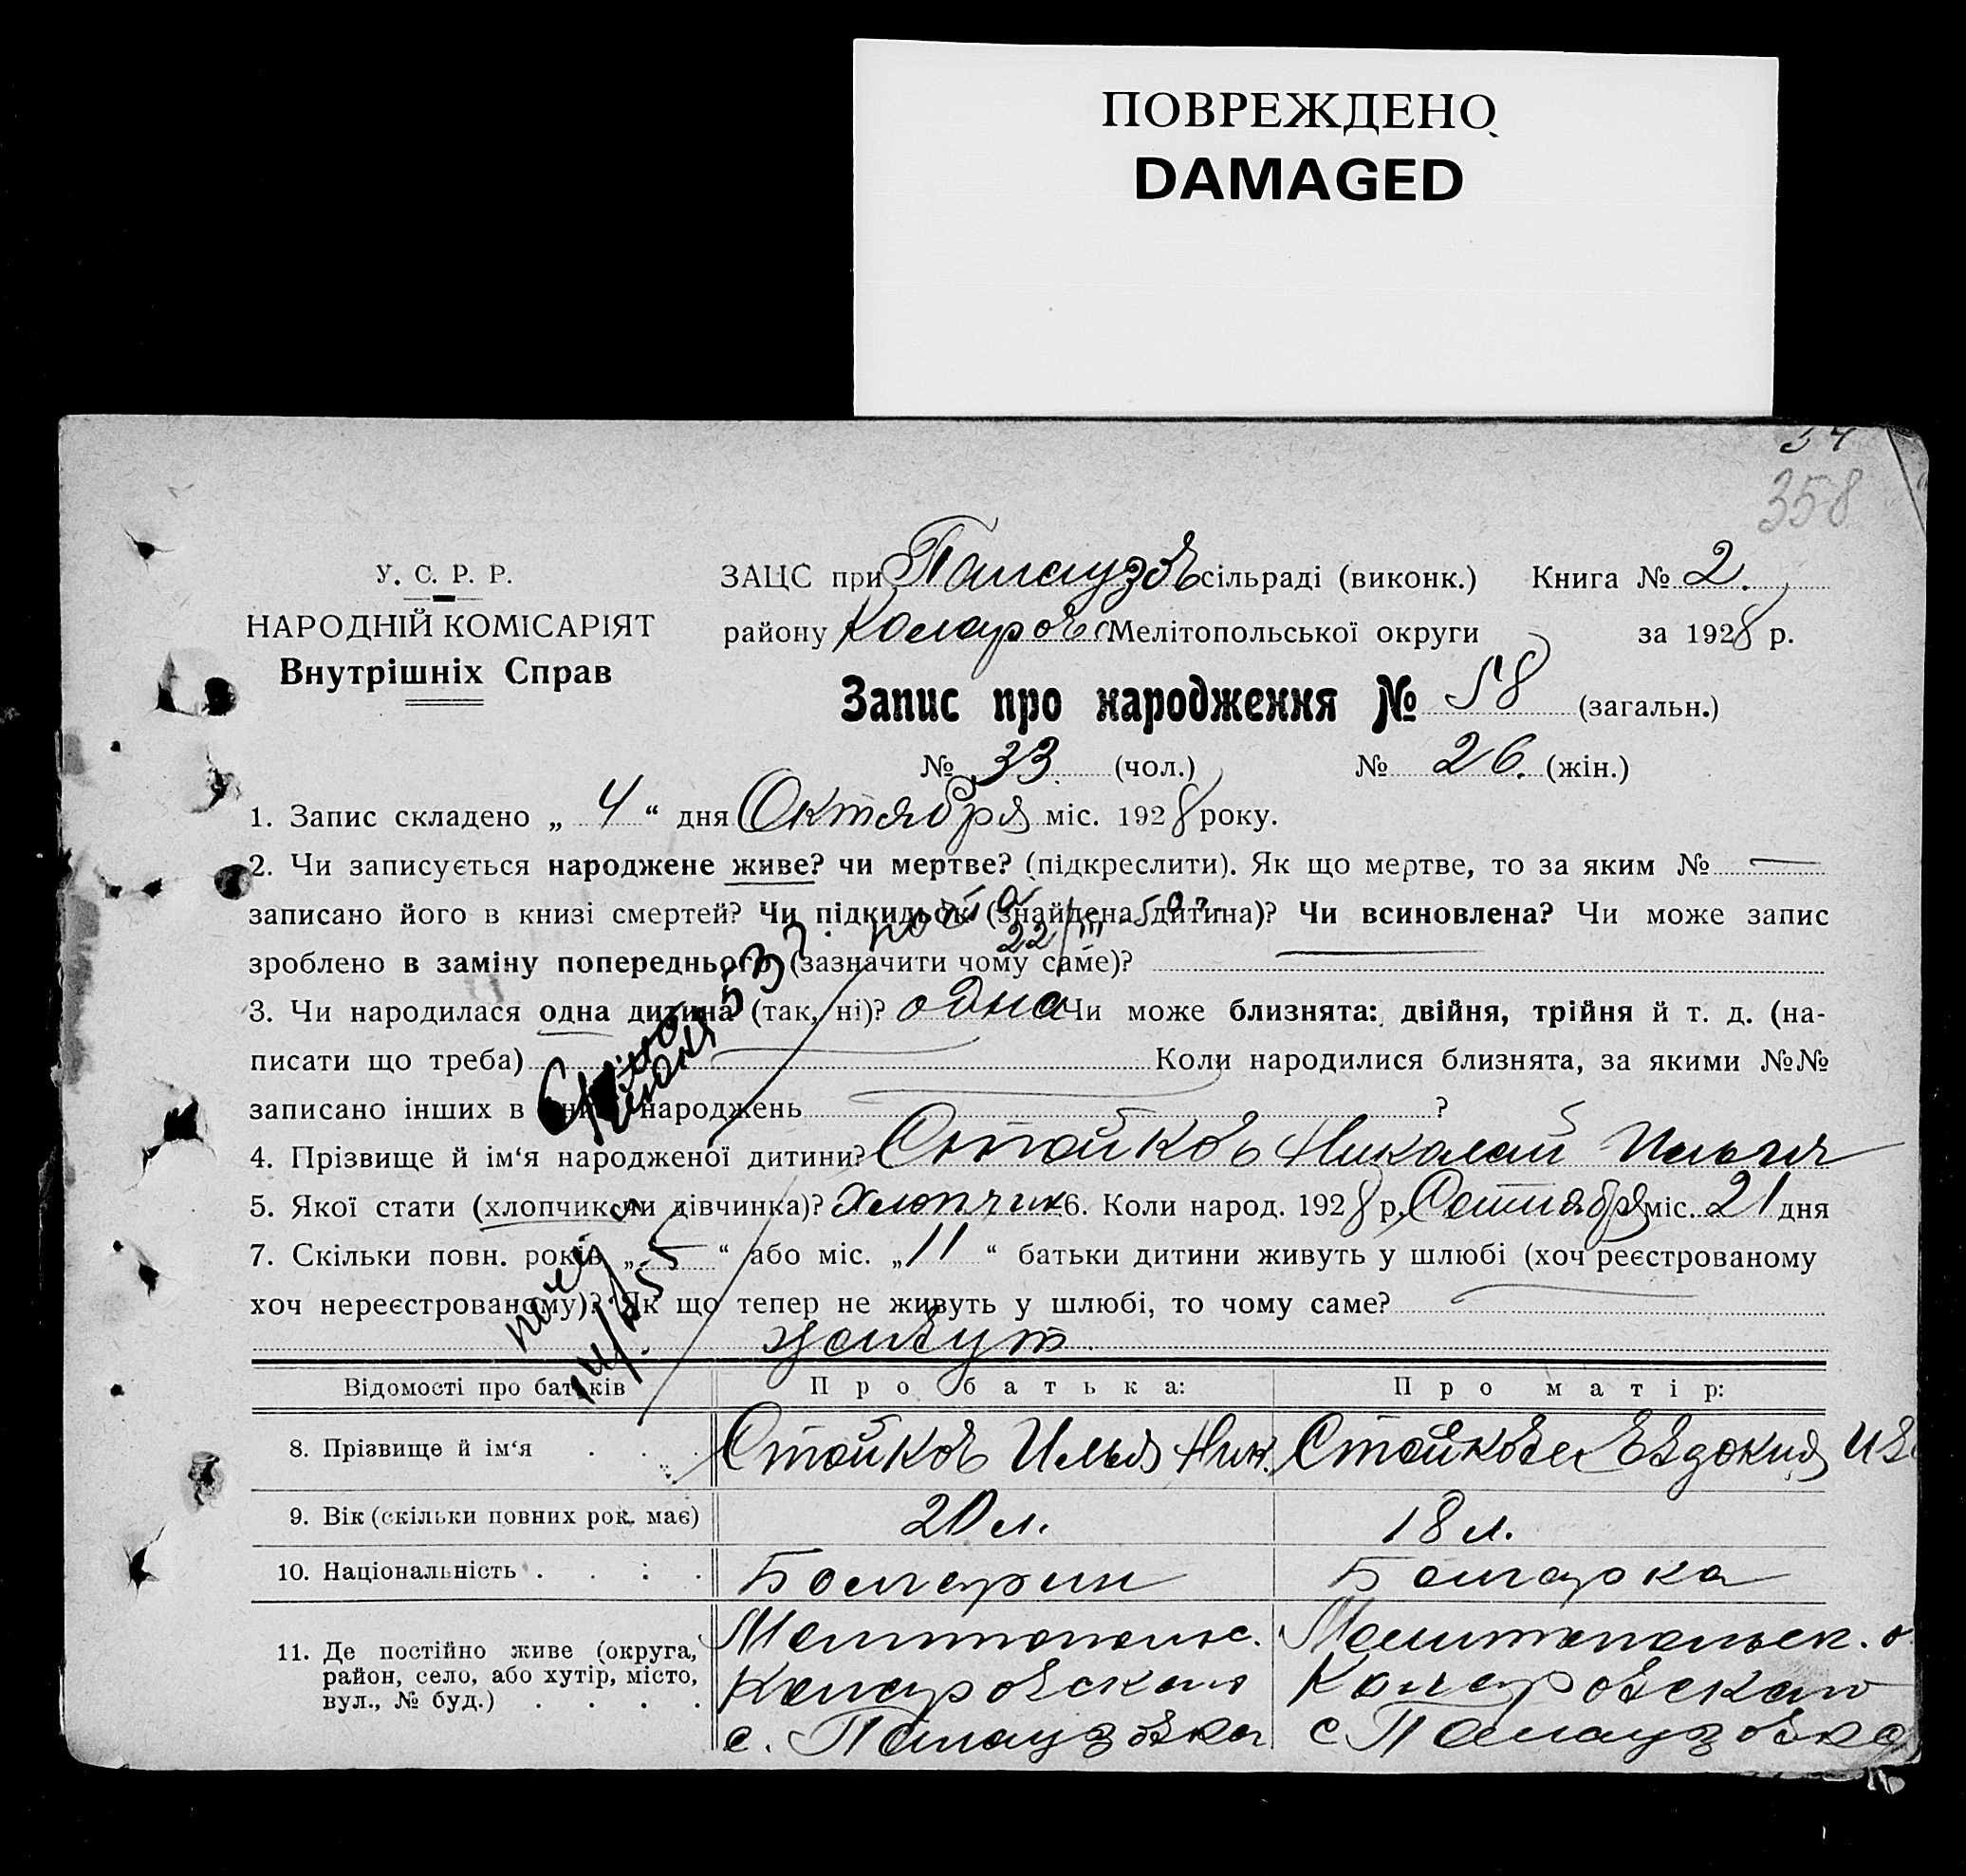 ПОВРЕЖДЕНО
DAMAGED
54
358
У. С. Р. Р.
НАРОДНІЙ КОМІСАРІЯТ
Внутрішніх Справ
ЗАЦС при Палаузов сільраді (виконк.) Книга № 2.
району Коларовс Мелітопольської округи за 1928 р.
Запис про народження № 58 (загальн.)
№ 33 (чол.) № 26. (жін.)
1. Запис складено „ 4 “ дня Октября міс. 1928 року.
2. Чи записується народжене живе? чи мертве? (підкреслити). Як що мертве, то за яким № —
записано його в книзі смертей? Чи підкидьок (знайдена дитина)? Чи всиновлена? Чи може запис
22/III 50 г.
зроблено в заміну попереднього (зазначити чому саме)?
3. Чи народилася одна дитина (так, ні)? одна Чи може близнята: двійня, трійня й т. д. (на-
писати що треба) Коли народилися близнята, за якими №№
записано інших в книзі народжень ?
4. Прізвище й ім‘я народженої дитини? Стойков Николай Илья
5. Якої стати (хлопчик чи дівчинка)? хлопчик 6. Коли народ. 1928 р. Сентября міс. 21 дня
7. Скільки повн. років „ — “ або міс. „ 11 “ батьки дитини живуть у шлюбі (хоч реєстрованому
хоч нереєстрованому)? Як що тепер не живуть у шлюбі, то чому саме?
живут
Відомості про батьків Про батька: Про матір:
8. Прізвище й ім‘я . . . Стойков Илья Ник. Стойкова Евдокия Ив
9. Вік (скільки повних рок. має) 20 л. 18 л.
10. Національність . . : . Болгарин Болгарка
11. Де постійно живе (округа, район, село, або хутір, місто, вул., № буд.) . . . . Мелитопольс. Мелитопольск. о
Коларовского Коларовского
с. Палаузовка с Палаузовка